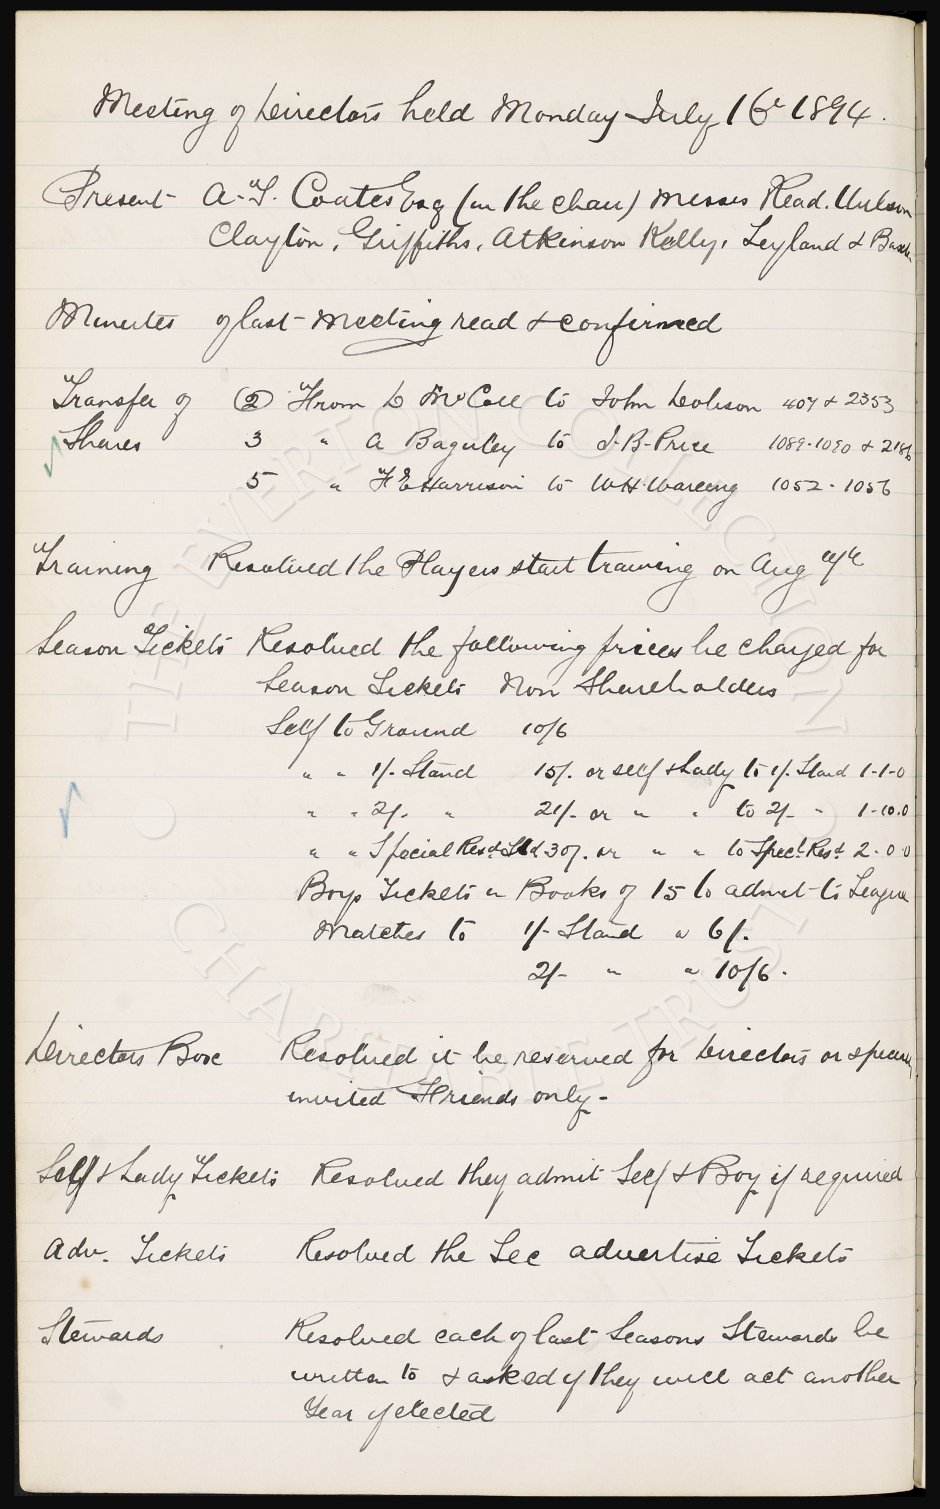 Meeting of Directors held Monday July 16th 1894.
Present A. T. Coates Esq (in the chair) Messrs Read.
Clayton, Griffiths, Atkinson Kelly, Leyland & Baxter
Minutes of last meeting read & confirmed
Transfer of (2) From D McColl to John Dobson 407 & 2353
Shares 3 " A Baguley to J. B. Price 1089-1090 & 2186
5 " F E Harrison to W H Wareing 1052 - 1056
Training Resolved the Players start training on Aug
Season Tickets Resolved the following prices be charged for
Season Tickets Non Shareholders
Self to Ground 10/6
" " 1/- Stand 15/. or self & Lady to 1/. Stand 1-1-0
" " 2/. " 21/- or " " to 2/- " 1-10.0
" " Special Resd Std 30/. or " " to Specl Resd 2-0-0
Boys Tickets in Books of 15 to admit to League
Matches to 1/- Stand a 6/.
2/- " a 10/6.
Directors Box Resolved it be reserved for Directors or specially
invited Friends only-
Self & Lady Tickets Resolved they admit Self & Boy if required
Adv. Tickets Resolved the Sec advertise Tickets
Stewards Resolved each of last Seasons Stewards be
written to & asked if they will act another
Year if elected
THE EVERTON COLLECTION
CHARITABLE TRUST